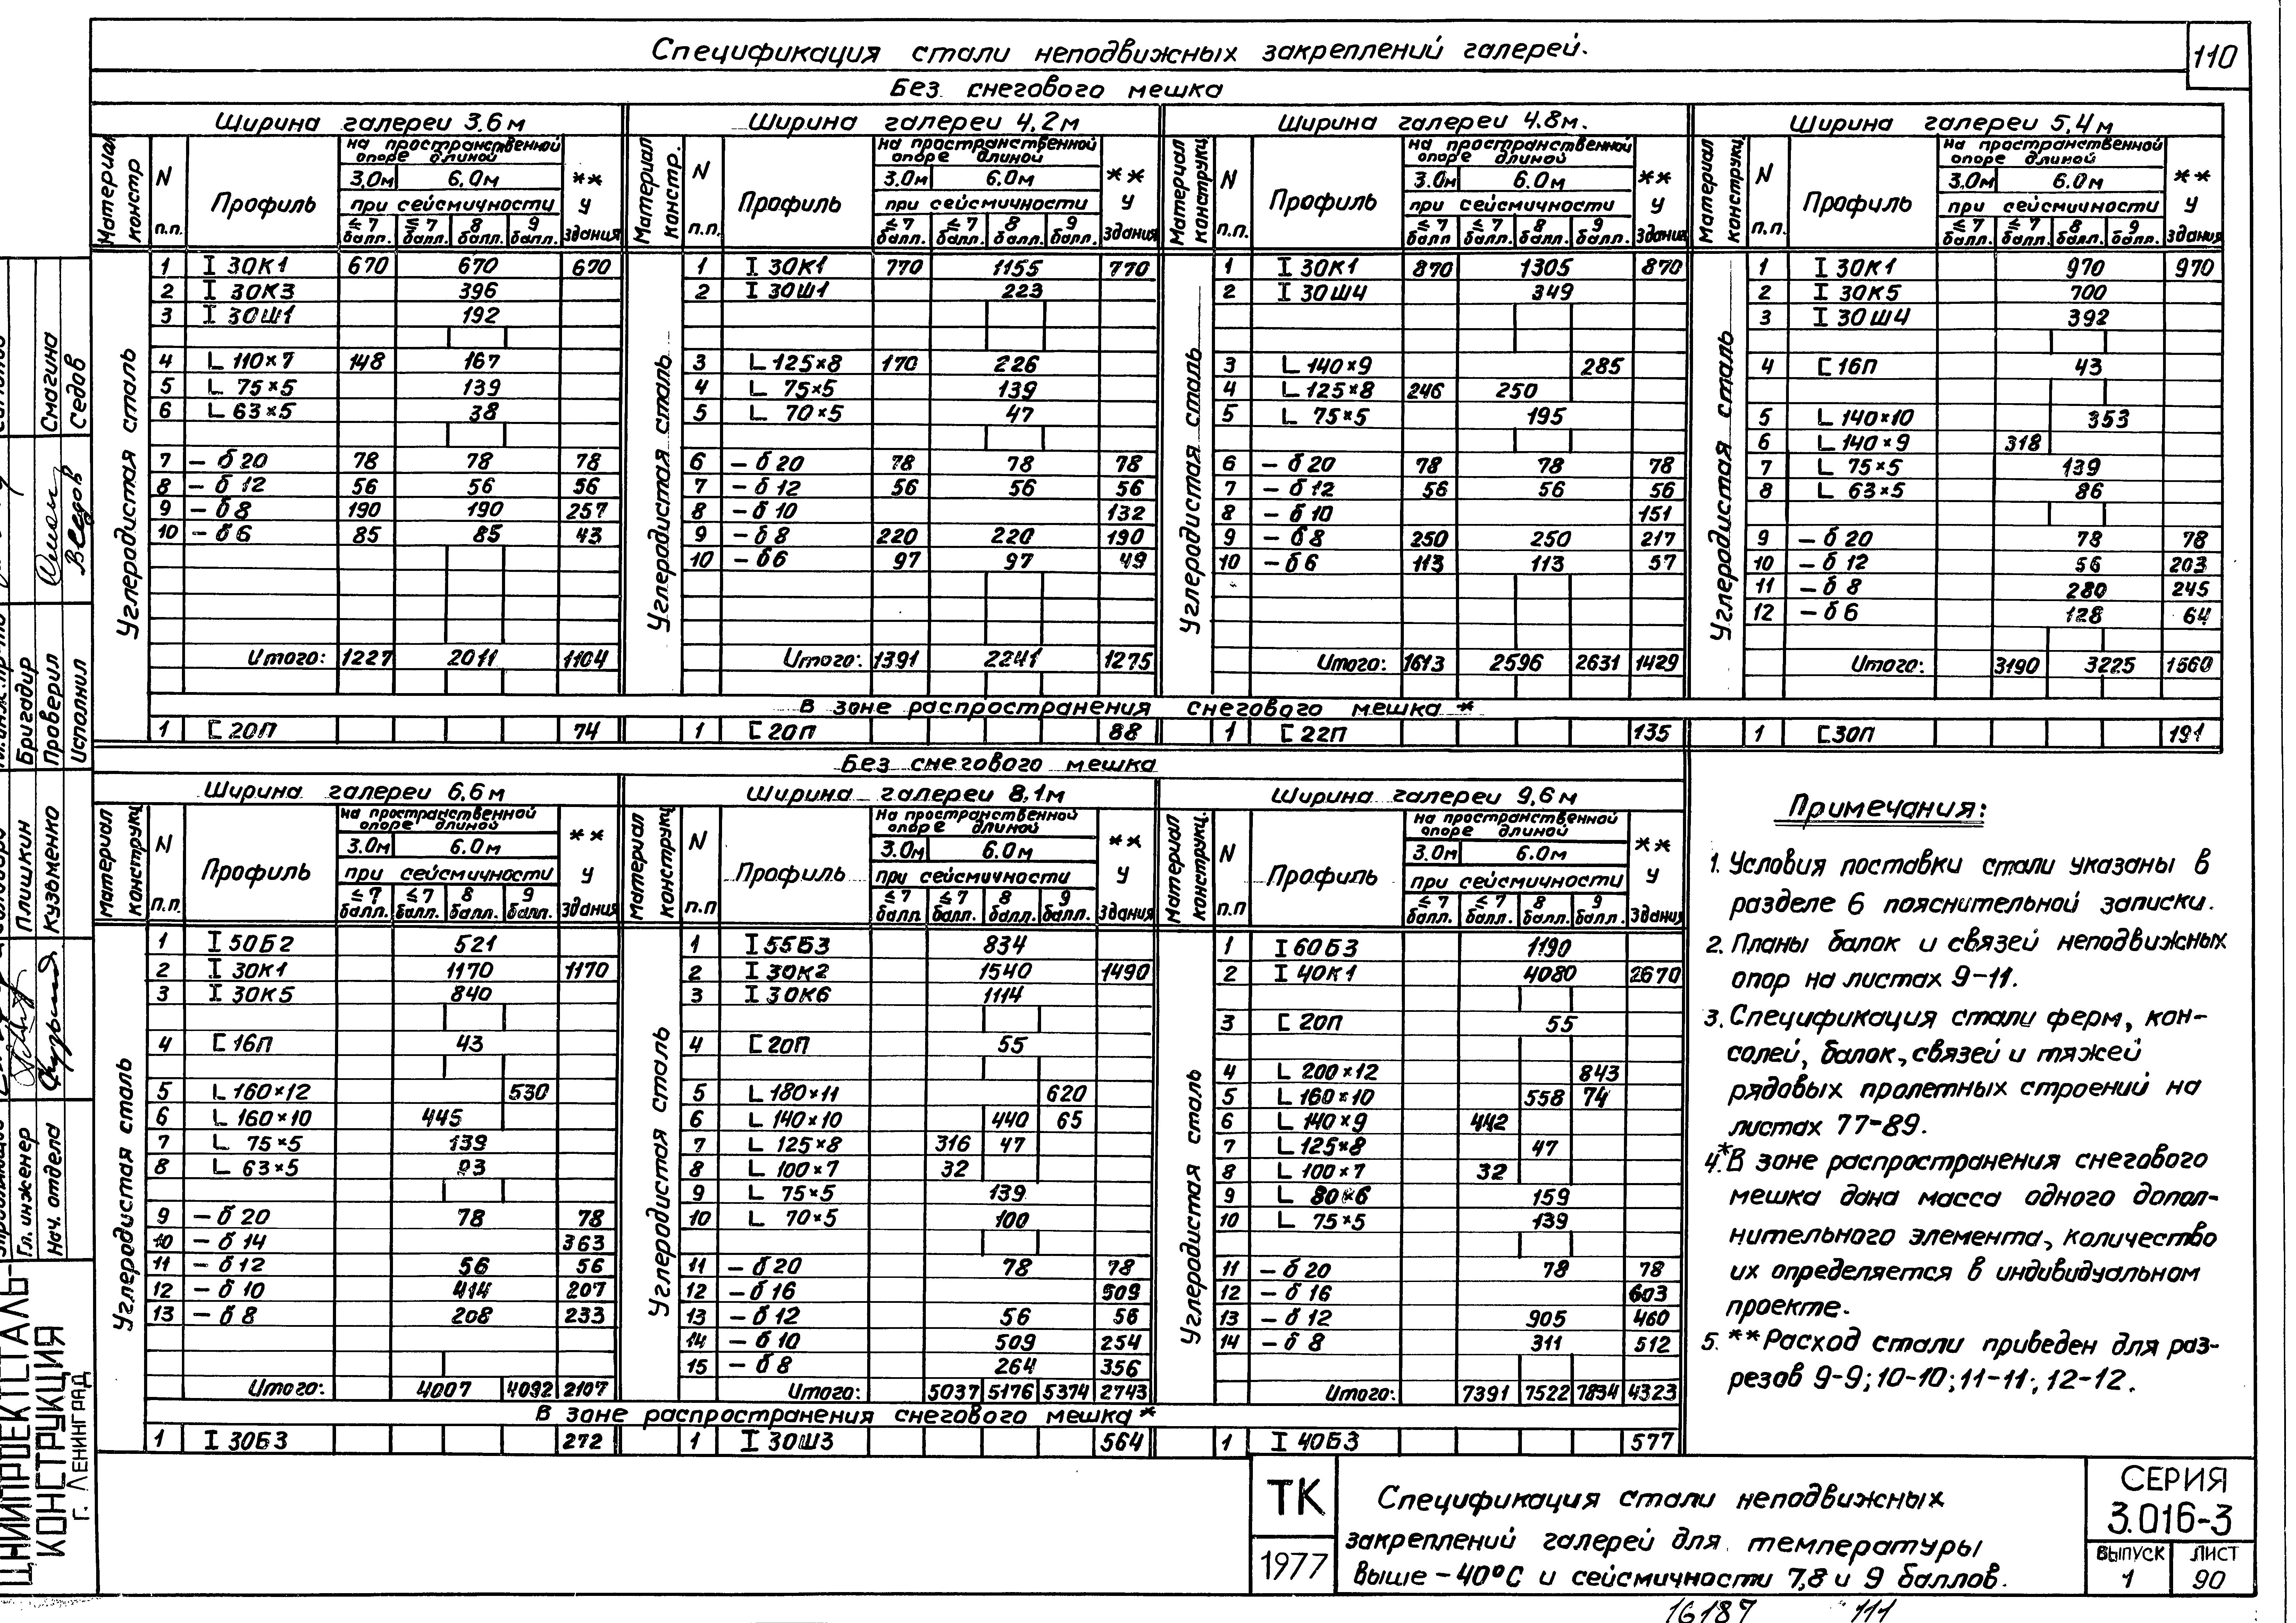 110
Спецификация стали неподвижных закреплений галерей.
Без снегового мешка
Ширина галереи 3.6м
Материал констр
N п.п.
Профиль
на пространственной опоре длиной
3,0м 6,0м
** у здания
при сейсмичности
≤7 балл. ≤7 балл. 8 балл. 9 балл.
Углеродистая сталь
1 I 30К1 670 670 670
2 I 30К3 396
3 I 30Ш1 192
4 L 110×7 148 167
5 L 75×5 139
6 L 63×5 38
7 – δ 20 78 78 78
8 – δ 12 56 56 56
9 – δ 8 190 190 257
10 – δ 6 85 85 43
Итого: 1227 2011 1104
Ширина галереи 4,2м
Материал констр.
N п.п.
Профиль
на пространственной опоре длиной
3,0м 6,0м
** у здания
при сейсмичности
≤7 балл. ≤7 балл. 8 балл. 9 балл.
Углеродистая сталь
1 I 30К1 770 1155 770
2 I 30Ш1 223
3 L 125×8 170 226
4 L 75×5 139
5 L 70×5 47
6 – δ 20 78 78 78
7 – δ 12 56 56 56
8 – δ 10 132
9 – δ 8 220 220 190
10 – δ6 97 97 49
Итого: 1391 2241 1275
Ширина галереи 4.8м.
Материал конструкц
N п.п.
Профиль
на пространственной опоре длиной
3.0м 6.0м
** у здания
при сейсмичности
≤7 балл ≤7 балл. 8 балл. 9 балл.
Углеродистая сталь
1 I 30К1 870 1305 870
2 I 30Ш4 349
3 L 140×9 285
4 L 125×8 246 250
5 L 75×5 195
6 – δ 20 78 78 78
7 – δ 12 56 56 56
8 – δ 10 151
9 – δ 8 250 250 217
10 – δ 6 113 113 57
Итого: 1613 2596 2631 1429
Ширина галереи 5,4м
Материал конструкц.
N п.п.
Профиль
на пространственной опоре длиной
3.0м 6.0м
** у здания
при сейсмичности
≤7 балл. ≤7 балл. 8 балл. 9 балл.
Углеродистая сталь
1 I 30К1 970 970
2 I 30К5 700
3 I 30Ш4 392
4 [ 16П 43
5 L 140×10 353
6 L 140×9 318
7 L 75×5 139
8 L 63×5 86
9 – δ 20 78 78
10 – δ 12 56 203
11 – δ 8 280 245
12 – δ 6 128 64
Итого: 3190 3225 1560
В зоне распространения снегового мешка *
1 [ 20П 74
1 [ 20П 88
1 [ 22П 135
1 [30П 191
Без снегового мешка
Ширина галереи 6,6м
Материал конструкц
N п.п.
Профиль
на пространственной опоре длиной
3.0м 6.0м
** у здания
при сейсмичности
≤7 балл. ≤7 балл. 8 балл. 9 балл.
Углеродистая сталь
1 I 50Б2 521
2 I 30К1 1170 1170
3 I 30К5 840
4 [ 16П 43
5 L 160×12 530
6 L 160×10 445
7 L 75×5 139
8 L 63×5 93
9 – δ 20 78 78
10 – δ 14 363
11 – δ 12 56 56
12 – δ 10 414 207
13 – δ 8 208 233
Итого: 4007 4092 2107
Ширина галереи 8,1м
Материал конструкц
N п.п
Профиль
На пространственной опоре длиной
3.0м 6.0м
** у здания
при сейсмичности
≤7 балл ≤7 балл. 8 балл. 9 балл.
Углеродистая сталь
1 I 55Б3 834
2 I 30К2 1540 1490
3 I 30К6 1114
4 [ 20П 55
5 L 180×11 620
6 L 140×10 440 65
7 L 125×8 316 47
8 L 100×7 32
9 L 75×5 139
10 L 70×5 100
11 – δ 20 78 78
12 – δ 16 509
13 – δ 12 56 56
14 – δ 10 509 254
15 – δ 8 264 356
Итого: 5037 5176 5374 2743
Ширина галереи 9,6м
Материал конструкц.
N п.п
Профиль
на пространственной опоре длиной
3.0м 6.0м
** у здания
при сейсмичности
≤7 балл. ≤7 балл. 8 балл. 9 балл.
Углеродистая сталь
1 I 60Б3 1190
2 I 40К1 4080 2670
3 [ 20П 55
4 L 200×12 843
5 L 160×10 558 74
6 L 140×9 442
7 L 125×8 47
8 L 100×7 32
9 L 80×6 159
10 L 75×5 139
11 – δ 20 78 78
12 – δ 16 603
13 – δ 12 905 460
14 – δ 8 311 512
Итого: 7391 7522 7834 4323
В зоне распространения снегового мешка *
1 I 30Б3 272
1 I 30Ш3 564
1 I 40Б3 577
Примечания:
1. Условия поставки стали указаны в
разделе 6 пояснительной записки.
2. Планы балок и связей неподвижных
опор на листах 9-11.
3. Спецификация стали ферм, кон-
солей, балок, связей и тяжей
рядовых пролетных строений на
листах 77-89.
4.* В зоне распространения снегового
мешка дана масса одного допол-
нительного элемента, количество
их определяется в индивидуальном
проекте.
5. ** Расход стали приведен для раз-
резов 9-9; 10-10; 11-11; 12-12.
ТК
1977
Спецификация стали неподвижных
закреплений галерей для температуры
выше -40°С и сейсмичности 7,8 и 9 баллов.
СЕРИЯ
3.016-3
ВЫПУСК ЛИСТ
1 90
16187 111
Смагина
Седов
Бригадир
Проверил
Исполнил
Плишкин
Кузьменко
Гл. инженер
Нач. отдела
ЦНИИПРОЕКТСТАЛЬ-
КОНСТРУКЦИЯ
г. Ленинград